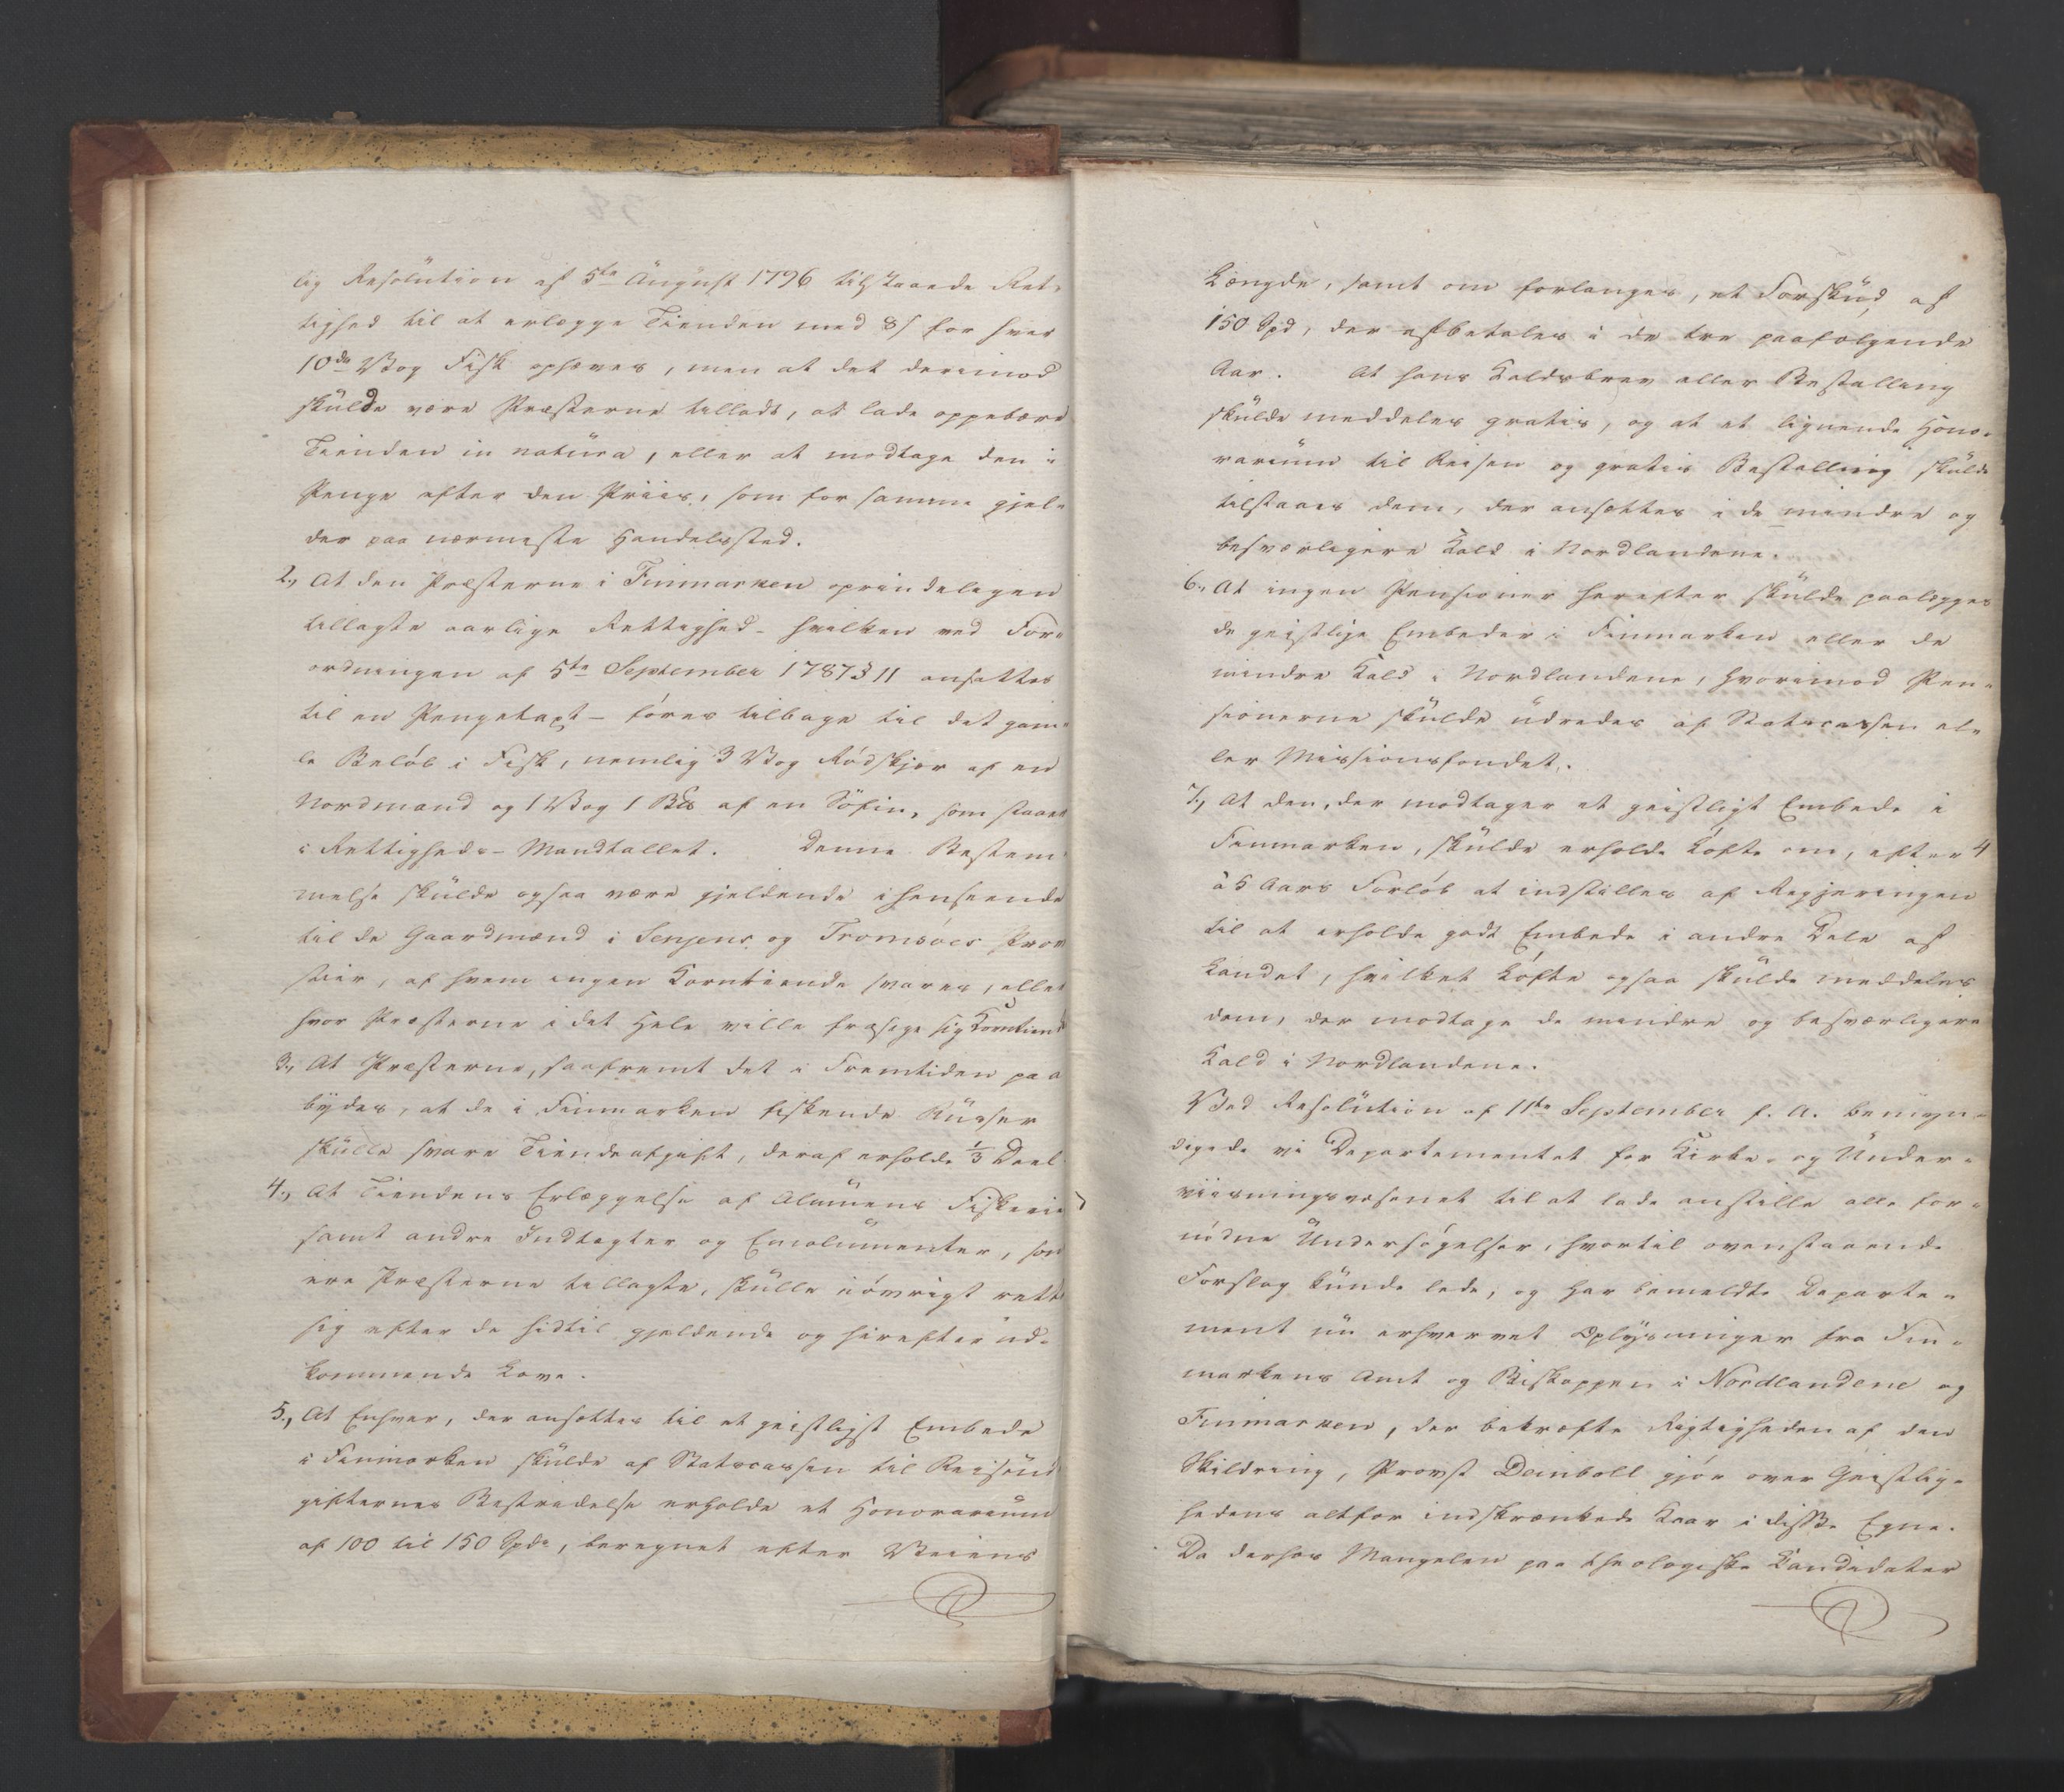 lig Resolution af 5te August 1796 tilstaaede Ret-
tighed til at erlægge Tienden med 8 s for hver
10de Vog Fisk ophæves, men at det derimod
skulde være Præsterne tilladt, at lade oppebære
Tienden in natura, eller at modtage den i
Penge efter den Priis, som for samme gjel-
der paa nærmeste Handelssted.
2., At den Præsterne i Finmarken oprindeligen
tillagte aarlige Rettighed - hvilken ved For-
ordningen af 5te September 1787 § 11 ansattes
til en Pengetaxt - føres tilbage til det gam-
le Beløb i Fisk, nemlig 3 Vog Rødskjær af en
Nordmand og 1 Vog 1 af en Søfin, som staaer
i Rettigheds-Mandtallet. Denne Bestem-
melse skulde ogsaa være gjeldende i henseende
til de Gaardmænd i Senjens og Tromsøes Prov
stier, af hvem ingen Korntiende svares, eller
hvor Præsterne i det Hele ville frasige sig Korntiend
3., At Præsterne, saafremt det i Fremtiden paa
bydes, at de i Finmarken fiskende Russer
skulle svare Tiendeafgift, deraf erholde 1/3 Deel
4., At Tiendens Erlæggelse af Almuens Fiskerie
samt andre Indtægter og Emolumenter, som
ere Præsterne tillagte, skulle iøvrigt rette
sig efter de hidtil gjeldende og herefter ud-
kommende Love.
5., At Enhver, der ansættes til et geistligt Embede
i Finmarken skulde af Statscassen til Reiseud
gifternes Bestridelse erholde et Honorarium
af 100 til 150 Spd, beregnet efter Veiens
Længde, samt om forlanges, et Forskud af
150 Spd, der afbetales i de tre paafølgende
Aar. At hans Kaldsbrev eller Bestalling
skulde meddeles gratis, og at et lignende Hono-
rarium til Reisen og gratis Bestalling skulde
tilstaaes dem, der ansættes i de mindre og
besværligere Kald i Nordlandene.
6., At ingen Pensioner herefter skulde paalægges
de geistlige Embeder i Finmarken eller de
mindre Kald i Nordlandene, hvorimod Pen-
sionerne skulde udredes af Statscassen el-
ler Missionsfondet.
7., At den, der modtager et geistligt Embede i
Finmarken, skulde erholde Løfte om, efter 4
à 5 Aars Forløb at indstilles af Regjeringen
til at erholde godt Embede i andre Dele af
Landet, hvilket Løfte ogsaa skulde meddeles
dem, der modtage de mindre og besværligere
Kald i Nordlandene.
Ved Resolution af 11te September f. A. bemyn-
digede vi Departementet for Kirke- og Under-
viisningsvæsenet til at lade anstille alle for-
nødne Undersøgelser, hvortil ovenstaaende
Forslag kunde lede, og har bemeldte Departe-
ment nu erhvervet Oplysninger fra Fin-
markens Amt og Biskoppen i Nordlandene og
Finmarken, der bekræfte Rigtigheden af den
Skildring, Provst Deinboll gjør over Geistlig-
hedens altfor indskrænkede Kaar i disse Egne.
Da derhos Mangelen paa theologiske Candidater